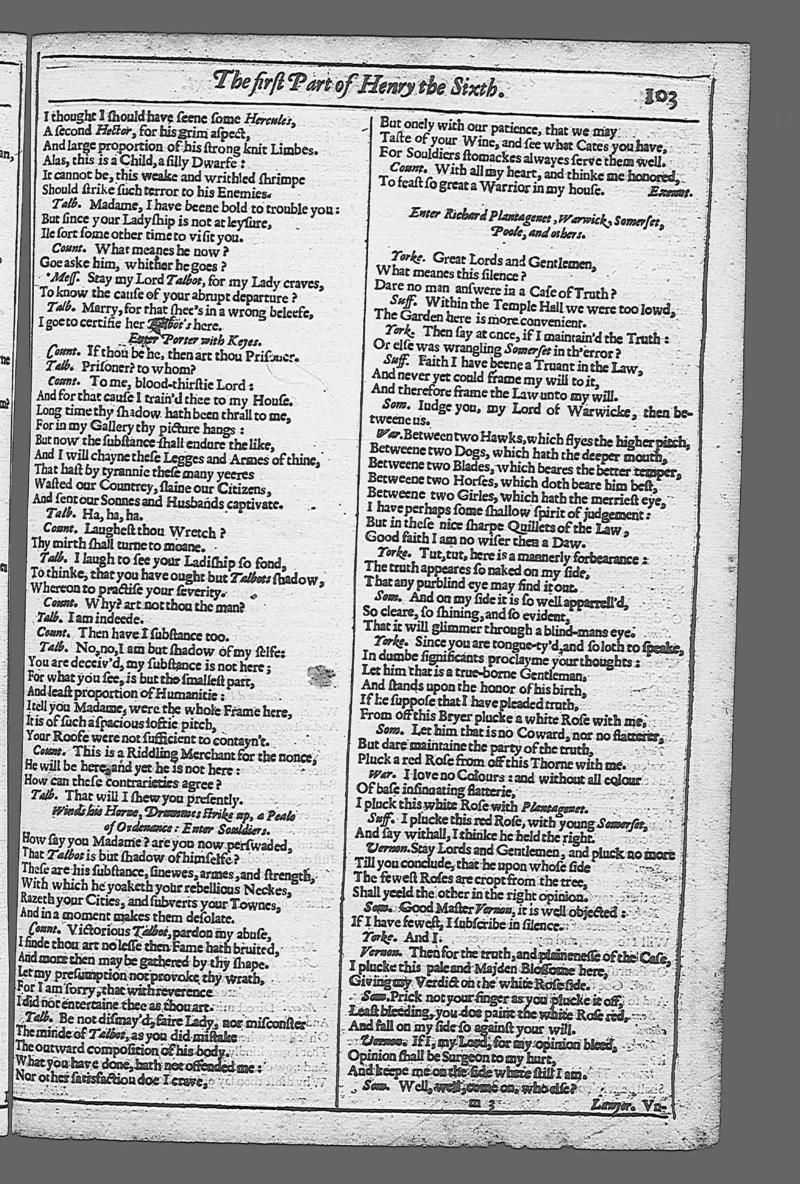 The first Part of Henry the Sixth.
103
I thought I should have seene some Hercules,
A second Hector, for his grim aspect,
And large proportion of his strong knit Limbes.
Alas, this is a Child, a silly Dwarfe:
It cannot be, this weake and writhled shrimpe
Should strike such terror to his Enemies.
Talb. Madame, I have beene bold to trouble you:
But since your Ladyship is not at leysure,
Ile sort some other time to visit you.
Count. What meanes he now?
Goe aske him, whither he goes?
Mess. Stay my Lord Talbot, for my Lady craves,
To know the cause of your abrupt departure?
Talb. Marry, for that shee's in a wrong beleefe,
I goe to certifie her Talbot's here.
Enter Porter with Keyes.
Count. If thou be he, then art thou Prisoner.
Talb. Prisoner? to whom?
Count. To me, blood-thirstie Lord:
And for that cause I train'd thee to my House.
Long time thy shadow hath been thrall to me,
For in my Gallery thy picture hangs:
But now the substance shall endure the like,
And I will chayne these Legges and Armes of thine,
That hast by tyrannie these many yeeres
Wasted our Countrey, slaine our Citizens,
And sent our Sonnes and Husbands captivate.
Talb. Ha, ha, ha.
Count. Laughest thou Wretch?
Thy mirth shall turne to moane.
Talb. I laugh to see your Ladiship so fond,
To thinke, that you have ought but Talbots shadow,
Whereon to practise your severity.
Count. Why? art not thou the man?
Talb. I am indeede.
Count. Then have I substance too.
Talb. No, no, I am but shadow of my selfe:
You are deceiv'd, my substance is not here;
For what you see, is but the smallest part,
And least proportion of Humanitie:
I tell you Madame, were the whole Frame here,
It is of such a spacious loftie pitch,
Your Roofe were not sufficient to contayn't.
Count. This is a Riddling Merchant for the nonce,
He will be here, and yet he is not here:
How can these contrarieties agree?
Talb. That will I shew you presently.
Winds his Horne, Drummes strike up, a Peale
of Ordenance: Enter Souldiers.
How say you Madame? are you now perswaded,
That Talbot is but shadow of himselfe?
These are his substance, sinewes, armes, and strength,
With which he yoaketh your rebellious Neckes,
Razeth your Cities, and subverts your Townes,
And in a moment makes them desolate.
Count. Victorious Talbot, pardon my abuse,
I finde thou art no lesse then Fame hath bruited,
And more then may be gathered by thy shape.
Let my presumption not provoke thy wrath,
For I am sorry, that with reverence
I did not entertaine thee as thou art.
Talb. Be not dismay'd, faire Lady, nor misconster
The minde of Talbot, as you did mistake
The outward composition of his body.
What you have done, hath not offended me:
Nor other satisfaction doe I crave,
But onely with our patience, that we may
Taste of your Wine, and see what Cates you have,
For Souldiers stomackes alwayes serve them well.
Count. With all my heart, and thinke me honored,
To feast so great a Warrior in my house. Exeunt.
Enter Richard Plantagenet, Warwick, Somerset,
Poole, and others.
Yorke. Great Lords and Gentlemen,
What meanes this silence?
Dare no man answere in a Case of Truth?
Suff. Within the Temple Hall we were too lowd,
The Garden here is more convenient.
York. Then say at once, if I maintain'd the Truth:
Or else was wrangling Somerset in th'error?
Suff. Faith I have beene a Truant in the Law,
And never yet could frame my will to it,
And therefore frame the Law unto my will.
Som. Iudge you, my Lord of Warwicke, then be-
tweene us.
War. Between two Hawks, which flyes the higher pitch,
Betweene two Dogs, which hath the deeper mouth,
Betweene two Blades, which beares the better temper,
Betweene two Horses, which doth beare him best,
Betweene two Girles, which hath the merriest eye,
I have perhaps some shallow spirit of judgement:
But in these nice sharpe Quillets of the Law,
Good faith I am no wiser then a Daw.
Yorke. Tut, tut, here is a mannerly forbearance:
The truth appeares so naked on my side,
That any purblind eye may find it out.
Som. And on my side it is so well apparrell'd,
So cleare, so shining, and so evident,
That it will glimmer through a blind-mans eye.
Yorke. Since you are tongue-ty'd, and so loth to speake,
In dumbe significants proclayme your thoughts:
Let him that is a true-borne Gentleman,
And stands upon the honor of his birth,
If he suppose that I have pleaded truth,
From off this Bryer plucke a white Rose with me.
Som. Let him that is no Coward, nor no flatterer,
But dare maintaine the party of the truth,
Pluck a red Rose from off this Thorne with me.
War. I love no Colours: and without all colour
Of base insinuating flatterie,
I pluck this white Rose with Plantagenet.
Suff. I plucke this red Rose, with young Somerset,
And say withall, I thinke he held the right.
Vernon. Stay Lords and Gentlemen, and pluck no more
Till you conclude, that he upon whose side
The fewest Roses are cropt from the tree,
Shall yeeld the other in the right opinion.
Som. Good Master Vernon, it is well objected:
If I have fewest, I subscribe in silence.
Yorke. And I.
Vernon. Then for the truth, and plainenesse of the Case,
I plucke this pale and Mayden Blossome here,
Giving my Verdict on the white Rose side.
Som. Prick not your finger as you plucke it off,
Least bleeding, you doe paint the white Rose red,
And fall on my side so against your will.
Vernon. If I, my Lord, for my opinion bleed,
Opinion shall be Surgeon to my hurt,
And keepe me on the side where still I am.
Som. Well, well, come on, who else?
m 3
Lawyer. Vn-